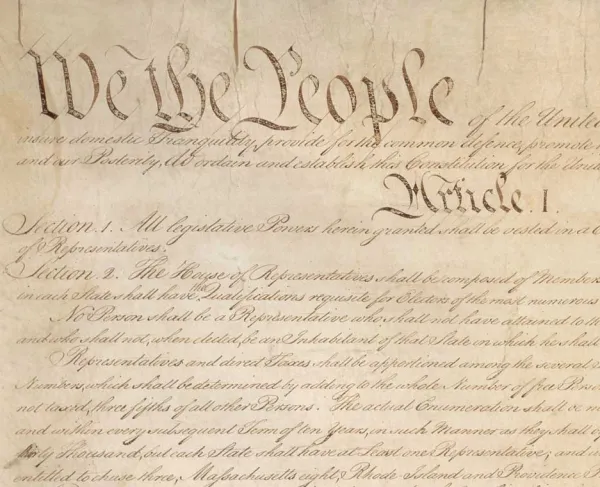 We the People of the United
insure domestic Tranquility, provide for the common defence, promote
and our Posterity, do ordain and establish this Constitution for the Unit
Article. I.
Section. 1. All legislative Powers herein granted shall be vested in a C
of Representatives.
Section. 2. The House of Representatives shall be composed of Members
in each State shall have the Qualifications requisite for Electors of the most numerous
No Person shall be a Representative who shall not have attained to th
and who shall not, when elected, be an Inhabitant of that State in which he shall
Representatives and direct Taxes shall be apportioned among the several
Numbers, which shall be determined by adding to the whole Number of free Perso
not taxed, three fifths of all other Persons. The actual Enumeration shall be m
and within every subsequent Term of ten Years, in such Manner as they shall
thirty Thousand, but each State shall have at Least one Representative; and
entitled to chuse three, Massachusetts eight, Rhode Island and Providence P